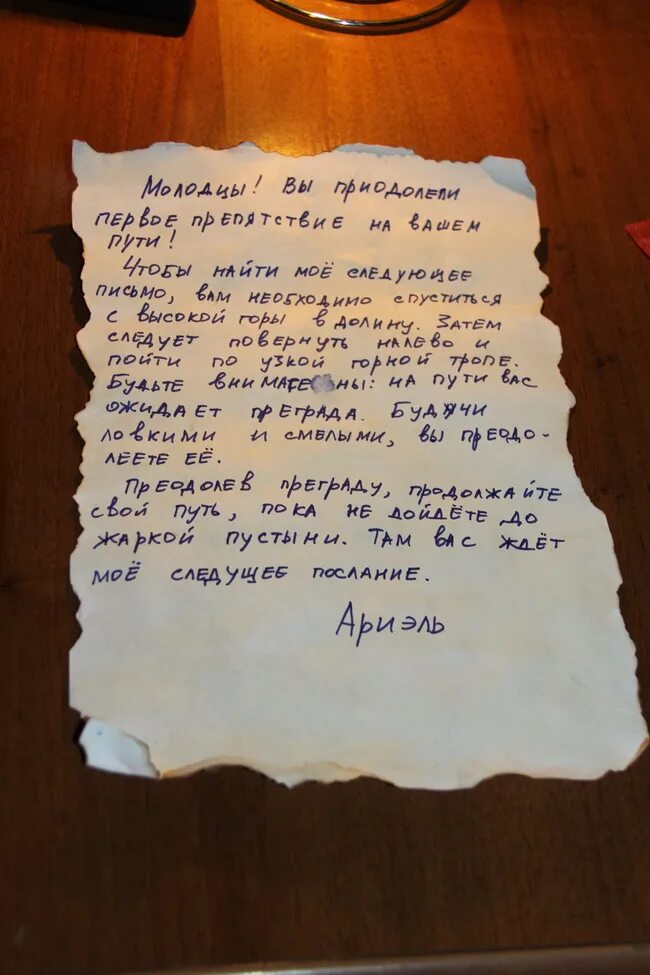 Молодцы! Вы приодолели
первое препятствие на вашем
пути!
Чтобы найти моё следующее
письмо, вам необходимо спуститься
с высокой горы в долину. Затем
следует повернуть налево и
пойти по узкой горной тропе.
Будьте ны: на пути вас
ожидает преграда. Будучи
ловкими и смелыми, вы преодо-
леете её.
Преодолев преграду, продолжайте
свой путь, пока не дойдёте до
жаркой пустыни. Там вас ждёт
моё следущее послание.
Ариэль